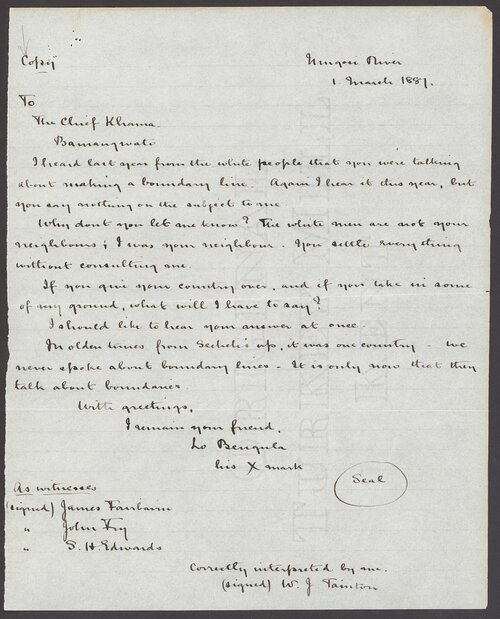 Copy
Umgosi River
1. March 1887.
To
The Chief Khama.
Bamangwato
I heard last year from the white people that you were talking
about making a boundary line. Again I hear it this year, but
you say nothing on the subject to me.
Why dont you let me know? The white men are not your
neighbours; I was your neighbour. You settle everything
without consulting me.
If you give your country over, and if you take in some
of my ground, what will I have to say?
I should like to hear your answer at once.
In olden times from Sechele's up, it was one country - we
never spoke about boundary lines - It is only now that they
talk about boundaries.
With greetings,
I remain your friend.
Lo Bengula
his X mark
Seal
As witnesses
(signed) James Fairbairn
" John Fry
" S. H. Edwards
Correctly interpreted by me.
(signed) W. J Tainton